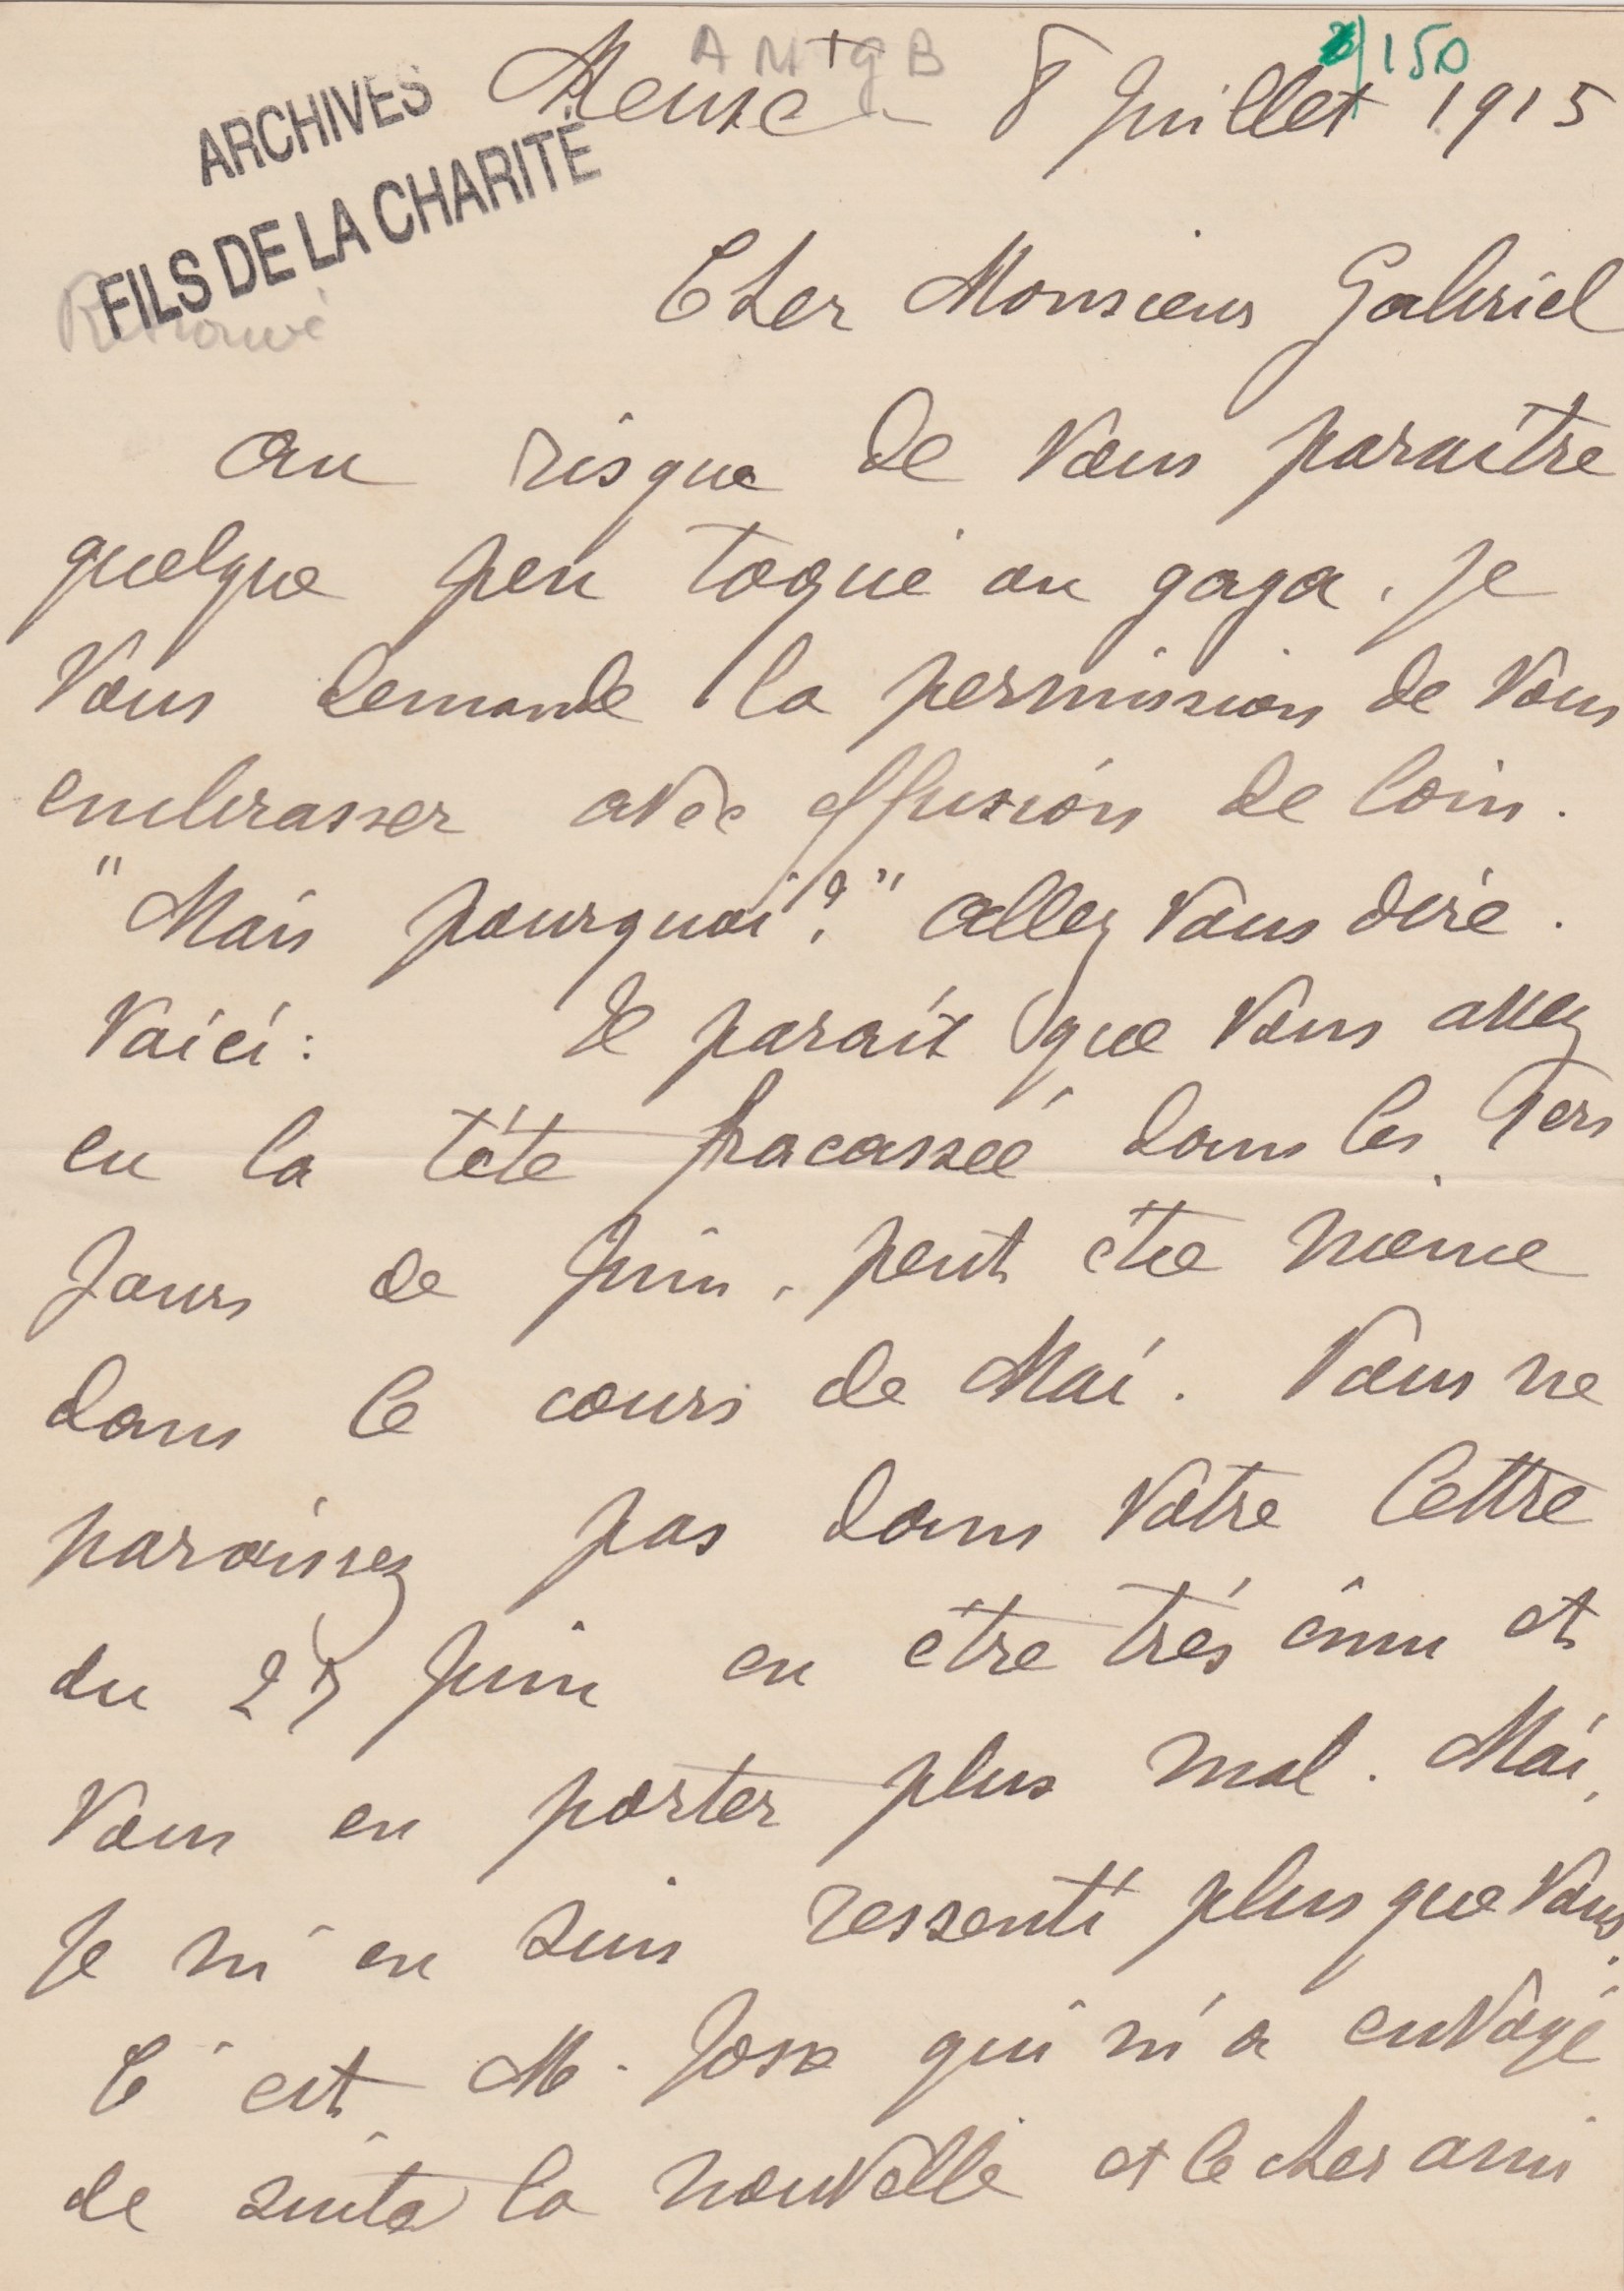 A M + g B
2/150
Meuse 8 Juillet 1915
ARCHIVES
FILS DE LA CHARITÉ
Cher Monsieur Gabriel
au risque de vous paraitre
quelque peu toqué ou gaga, je
vous demande la permission de vous
embrasser avec effusion de loin.
"Mais pourquoi?" allez vous dire.
Voici: Il parait que vous avez
eu la tête fracassée dans les 1ers
jours de Juin, peut être même
dans le cours de Mai. Vous ne
paraissez pas dans votre lettre
du 27 Juin en être très ému et
vous en porter plus mal. Moi,
je m'en suis ressenti plus que vous.
C'est M. Josse qui m'a envoyé
de suite la nouvelle et le cher ami